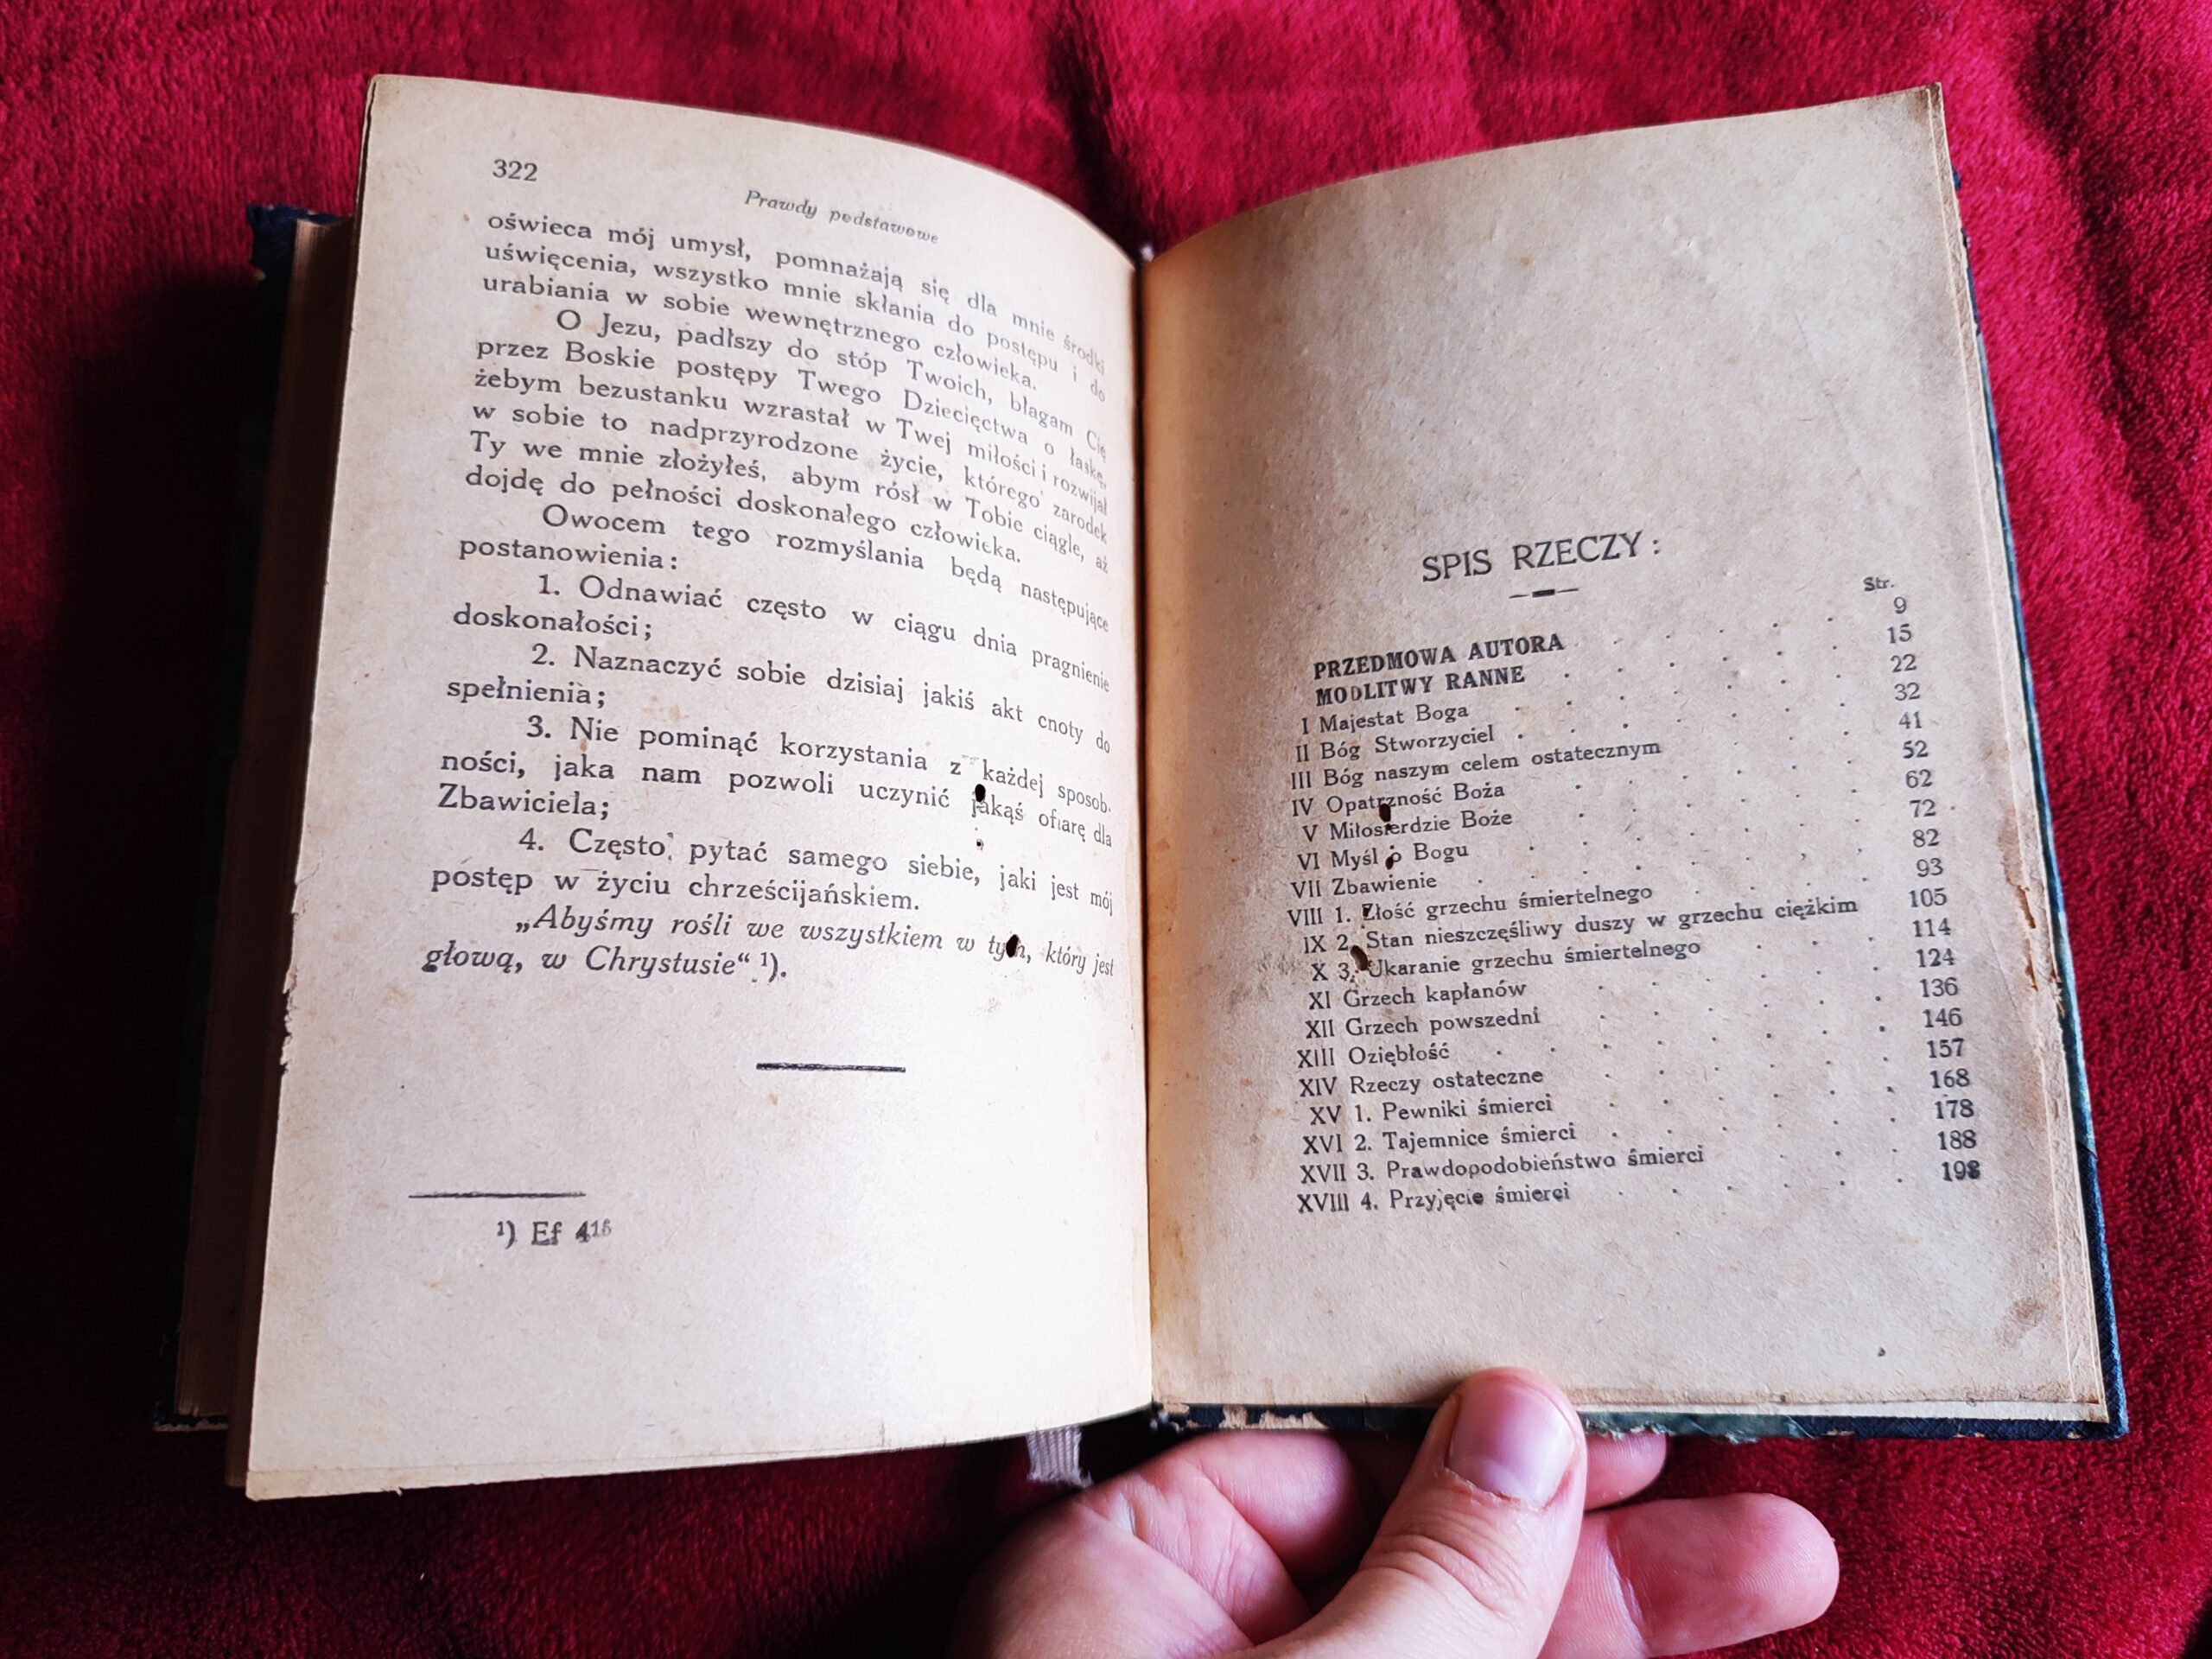 322
Prawdy podstawowe
oświeca mój umysł, pomnażają się dla mnie środki
uświęcenia, wszystko mnie skłania do postępu i do
urabiania w sobie wewnętrznego człowieka.
O Jezu, padłszy do stóp Twoich, błagam Cię
przez Boskie postępy Twego Dziecięctwa o łaskę,
żebym bezustanku wzrastał w Twej miłości i rozwijał
w sobie to nadprzyrodzone życie, którego zarodek
Ty we mnie złożyłeś, abym rósł w Tobie ciągle, aż
dojdę do pełności doskonałego człowieka.
Owocem tego rozmyślania będą następujące
postanowienia:
1. Odnawiać często w ciągu dnia pragnienie
doskonałości;
2. Naznaczyć sobie dzisiaj jakiś akt cnoty do
spełnienia;
3. Nie pominąć korzystania z każdej sposob-
ności, jaka nam pozwoli uczynić jakąś ofiarę dla
Zbawiciela;
4. Często pytać samego siebie, jaki jest mój
postęp w życiu chrześcijańskiem.
„Abyśmy rośli we wszystkiem w tym, który jest
głową, w Chrystusie“ ¹).
¹) Ef 4¹⁶
SPIS RZECZY:
Str.
PRZEDMOWA AUTORA . . . . . 9
MODLITWY RANNE . . . . . 15
I Majestat Boga . . . . . 22
II Bóg Stworzyciel . . . . . 32
III Bóg naszym celem ostatecznym . . . . 41
IV Opatrzność Boża . . . . . 52
V Miłosierdzie Boże . . . . . 62
VI Myśl o Bogu . . . . . 72
VII Zbawienie . . . . . 82
VIII 1. Złość grzechu śmiertelnego . . . . 93
IX 2. Stan nieszczęśliwy duszy w grzechu ciężkim 105
X 3. Ukaranie grzechu śmiertelnego . . . 114
XI Grzech kapłanów . . . . . 124
XII Grzech powszedni . . . . . 136
XIII Oziębłość . . . . . 146
XIV Rzeczy ostateczne . . . . . 157
XV 1. Pewniki śmierci . . . . . 168
XVI 2. Tajemnice śmierci . . . . . 178
XVII 3. Prawdopodobieństwo śmierci . . . 188
XVIII 4. Przyjęcie śmierci . . . . . 198